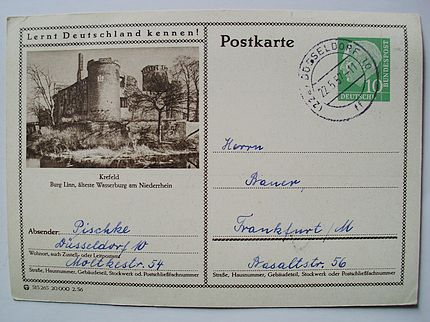 Lernt Deutschland kennen!
Postkarte
DÜSSELDORF 10
22.5.57
DEUTSCHE BUNDESPOST
10
Krefeld
Burg Linn, älteste Wasserburg am Niederrhein
Absender: Pischke
Düsseldorf 10
Wohnort, auch Zustell- oder Leitpostamt
Moltkestr. 54
Straße, Hausnummer, Gebäudeteil, Stockwerk od. Postschließfachnummer
Herrn
Bauer
Frankfurt/M
Basaltstr. 56
Straße, Hausnummer, Gebäudeteil, Stockwerk oder Postschließfachnummer
20 000 2.56